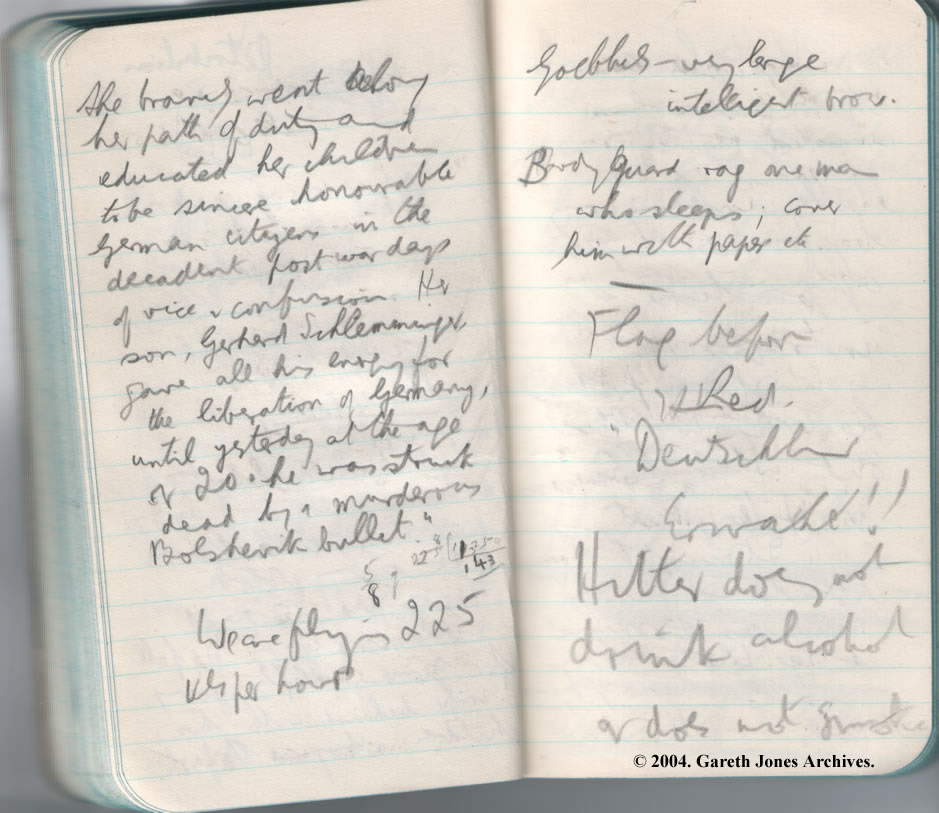 She bravely went along
her path of duty and
educated her children
to be sincere honourable
German citizens in the
decadent post war days
of vice & confusion. Her
son, Gerhard Schlemminger,
gave all his energy for
the liberation of Germany,
until yesterday at the age
of 20 he was struck
dead by a murderous
Bolshevik bullet."
5
8
143
We are flying 225
kls per hour
Goebbels – very large
intelligent brow.
Body Guard rag one man
who sleeps; cover
him with paper etc.
Flag before
Red.
"Deutschland
Erwache!!
Hitler does not
drink alcohol
or does not smoke
© 2004. Gareth Jones Archives.